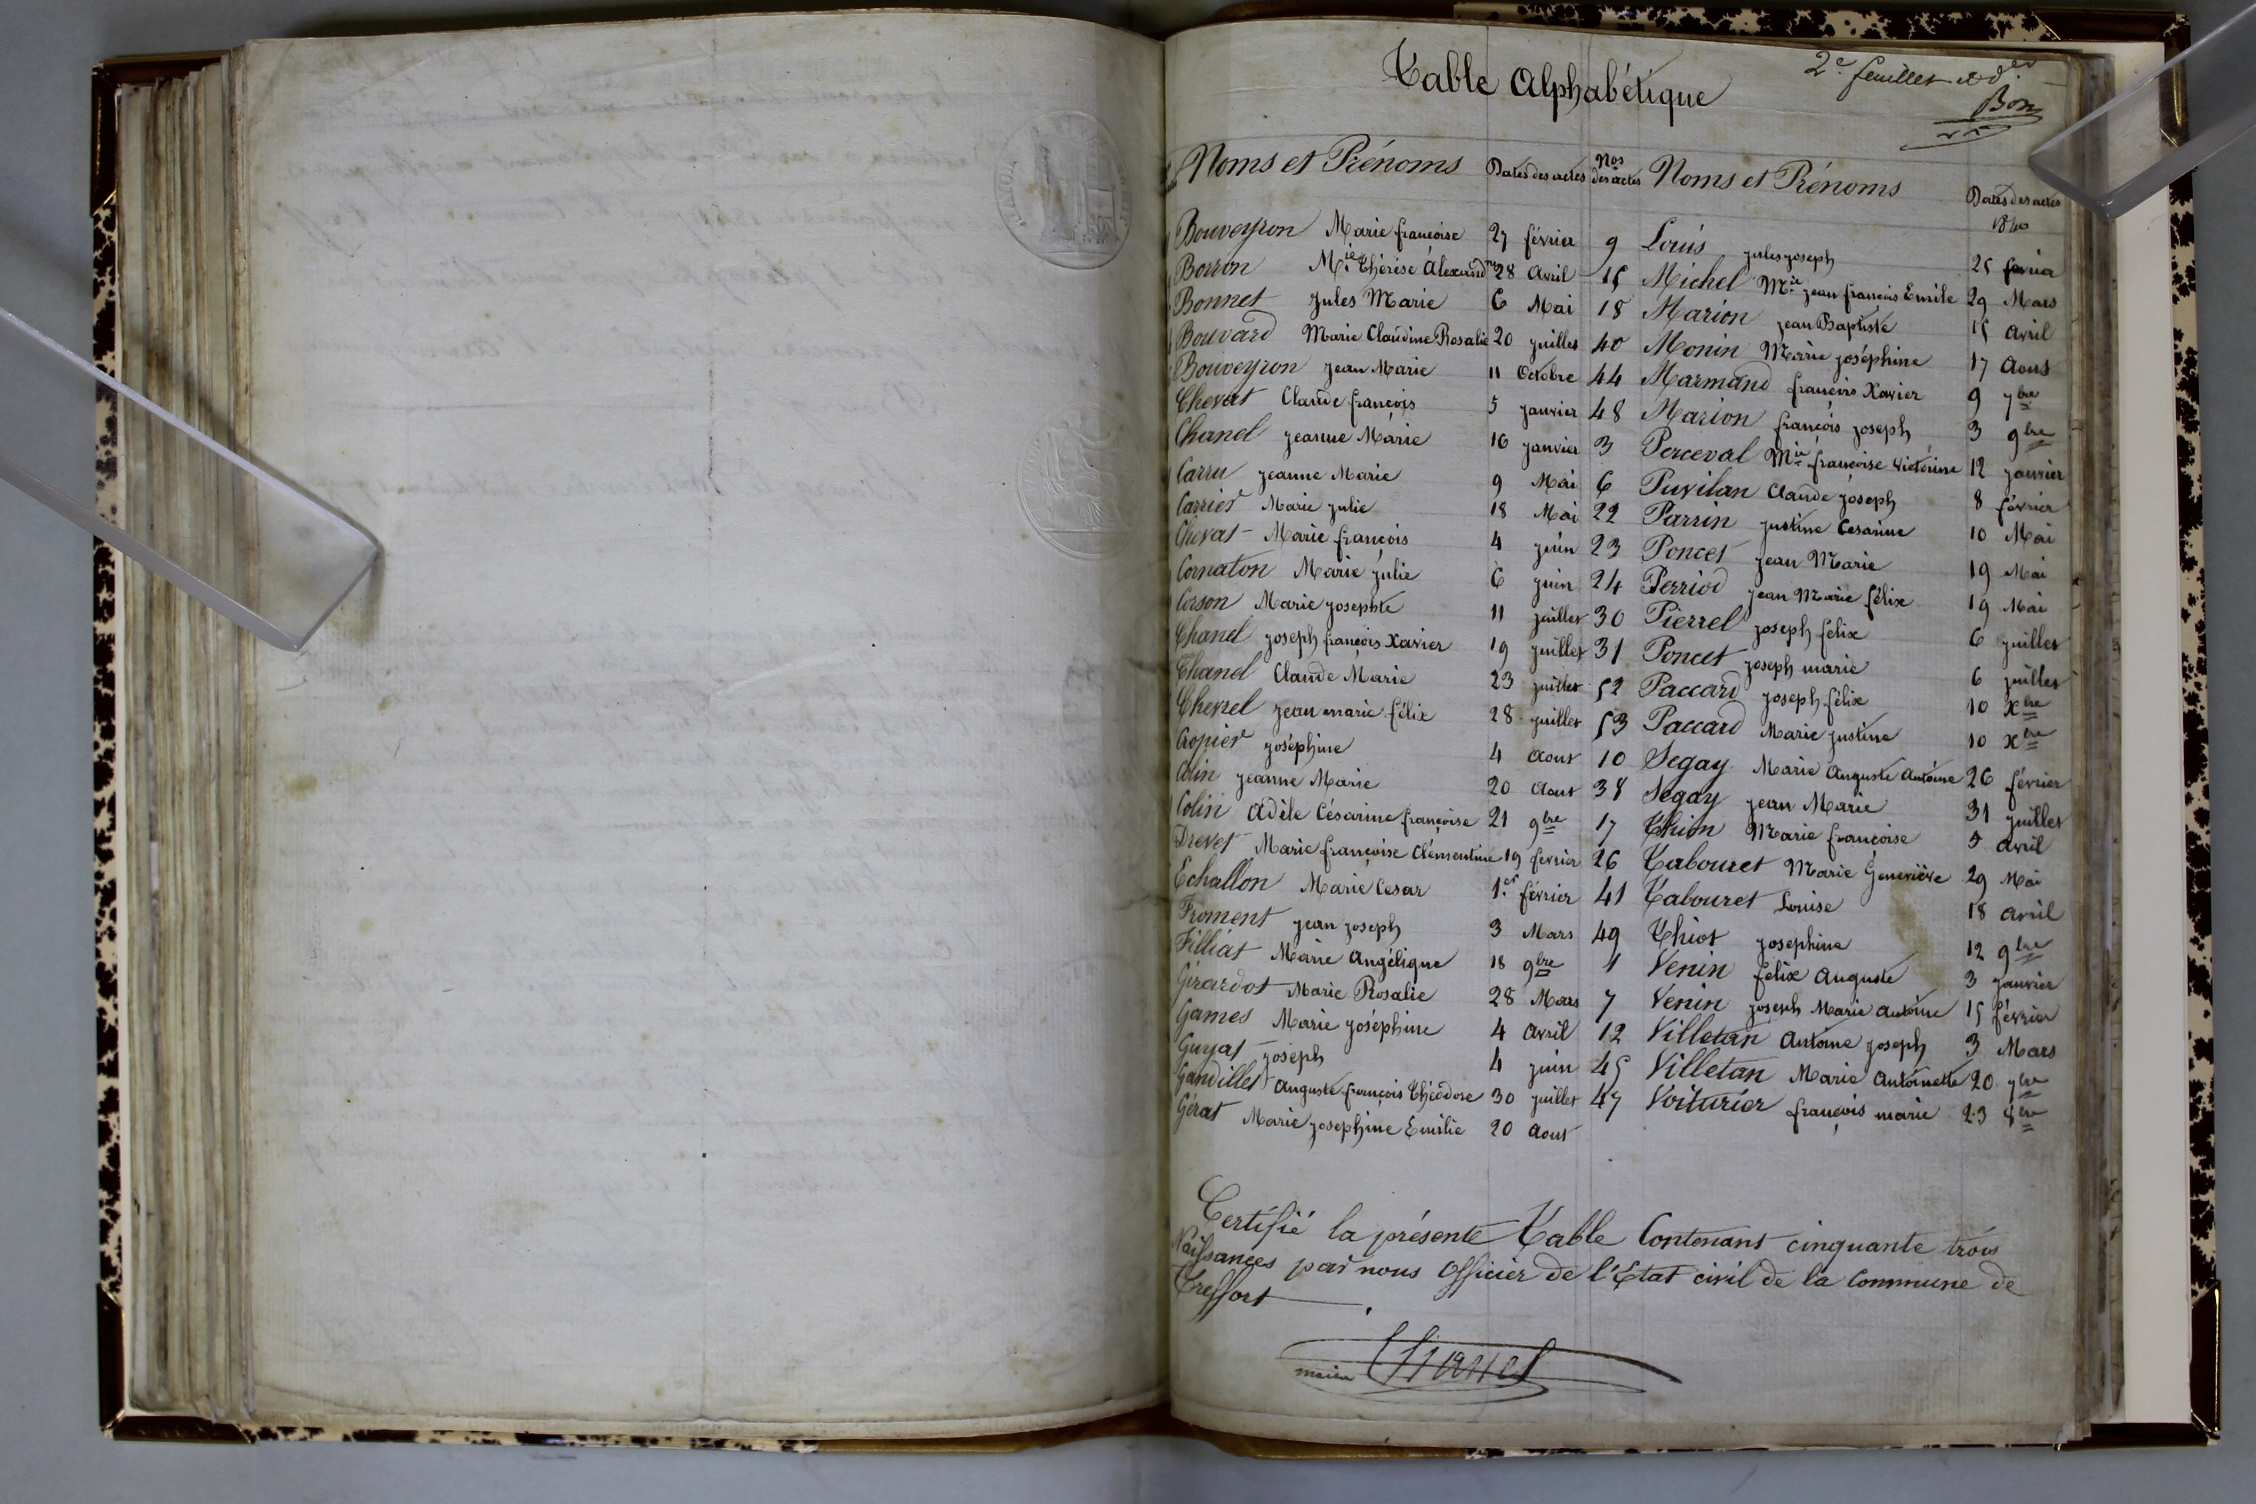 Table Alphabétique
2e feuillet et der
Bon
Noms et Prénoms Dates des actes Nos des actes Noms et Prénoms Dates des actes
1840
Bouveyron Marie françoise 27 février 9 Louis jules joseph 25 fevrier
Borron Mie Thérèse Alexandrne 28 Avril 15 Michel Mie jean françois Emile 29 Mars
Bonnet jules Marie 6 Mai 18 Marion jean Baptiste 15 avril
Bouvard Marie Claudine Rosalie 20 juillet 40 Monin Marie joséphine 17 Aout
Bouveyron jean Marie 11 Octobre 44 Marmand françois Xavier 9 7bre
Chevat Claude françois 5 janvier 48 Marion françois joseph 3 9bre
Chanel jeanne Marie 16 janvier 3 Perceval Mie françoise victorine 12 janvier
Carru jeanne Marie 9 Mai 6 Puvilan Claude joseph 8 février
Carrier Marie julie 18 Mai 22 Parrin justine Cesarine 10 Mai
Chevat Marie françois 4 juin 23 Poncet jean Marie 19 Mai
Cornaton Marie julie 6 juin 24 Perriod jean Marie félix 19 Mai
Corson Marie josephte 11 juillet 30 Pierrel joseph félix 6 juillet
Chanel joseph françois Xavier 19 juillet 31 Poncet joseph marie 6 juillet
Chanel Claude Marie 23 juillet 52 Paccard joseph félix 10 xbre
Chevrel jean marie félix 28 juillet 53 Paccard Marie justine 10 xbre
Cropier joséphine 4 Aout 10 Segay Marie Auguste Antoine 26 février
Colin jeanne Marie 20 Aout 38 Segay jean Marie 31 juillet
Colin Adèle Césarine françoise 21 9bre 17 Thion Marie françoise 5 avril
Drevet Marie françoise Clémentine 19 fevrier 26 Tabouret Marie Geneviève 29 Mai
Echallon Marie Cesar 1er février 41 Tabouret Louise 18 avril
Froment jean joseph 3 Mars 49 Thiot josephine 12 9bre
Filliat Marie Angélique 18 9bre 1 Venin félix Auguste 3 janvier
Girardot Marie Rosalie 28 Mars 7 Venin joseph Marie Antoine 15 février
Games Marie joséphine 4 Avril 12 Villetan Antoine joseph 3 Mars
Guyat joseph 4 juin 45 Villetan Marie Antoinette 20 7bre
Gandillet Auguste françois Théodore 30 juillet 47 Voiturier françois marie 23 8bre
Gérat Marie josephine Emilie 20 Aout
Certifié la présente Table Contenant cinquante trois
Naissances par nous Officier de l'Etat civil de la Commune de
Treffort
maire Chanel